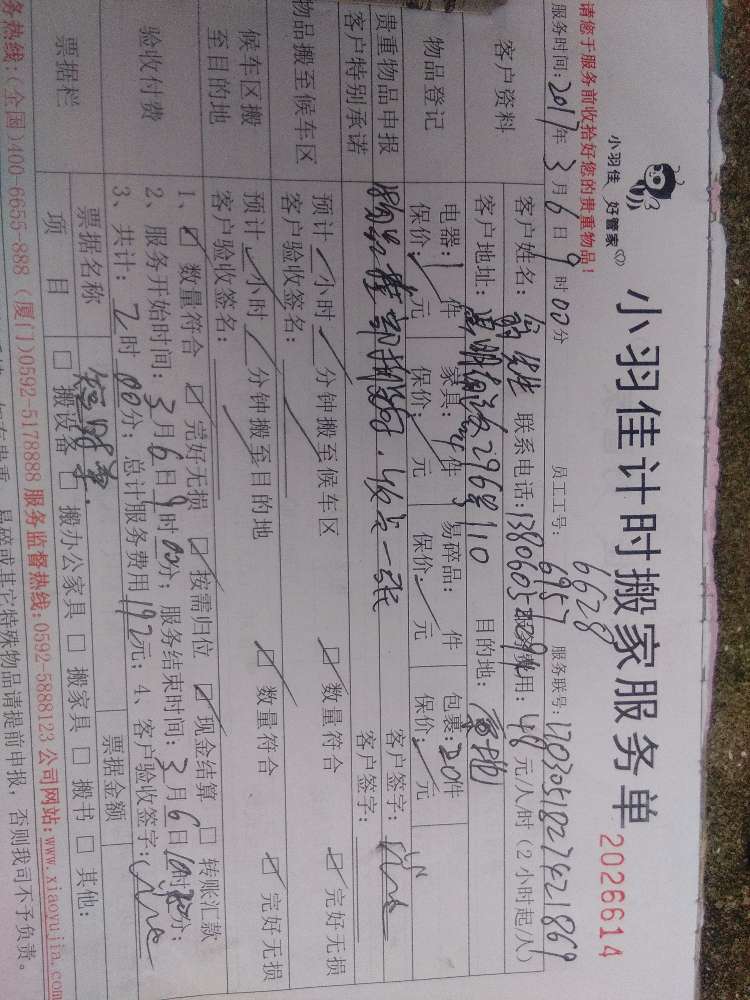 请您于服务前收拾好您的贵重物品!
小羽佳 好管家
小羽佳计时搬家服务单
2026614
6628
服务时间:2017年3月6日9时00分 员工工号:6957 服务联号:1703051827421869
客户资料
客户姓名: 联系电话: 服务费用:48元/人/时(2小时起/人)
客户地址: 296号110 目的地:
物品登记
电器:1件 家具: 件 易碎品: 件 包裹:20件
保价: 元 保价: 元 保价: 元 保价: 元
贵重物品申报
客户特别承诺
客户签字:
客户签字:
物品搬至候车区
预计 小时 分钟搬至候车区 ☑数量符合 ☑完好无损
客户验收签名:
候车区搬
至目的地
预计 小时 分钟搬至目的地 ☑数量符合 ☑完好无损
客户验收签名:
验收付费
1、☑数量符合 ☑完好无损 ☑按需归位 ☑现金结算 □转账汇款
2、服务开始时间:3月6日9时00分;服务结束时间:3月6日 时 分;
3、共计:2时00分;总计服务费用192元;4、客户验收签字:
票据栏
票据名称 票据金额
项 目 □搬设备 □搬办公家具 □搬家具 □搬书 □其他:
务热线:(全国)400-6655-888 (厦门)0592-5178888 服务监督热线:0592-5888123 公司网站:www.xiaoyujia.com
易碎或其它特殊物品请提前申报,否则我司不予负责。